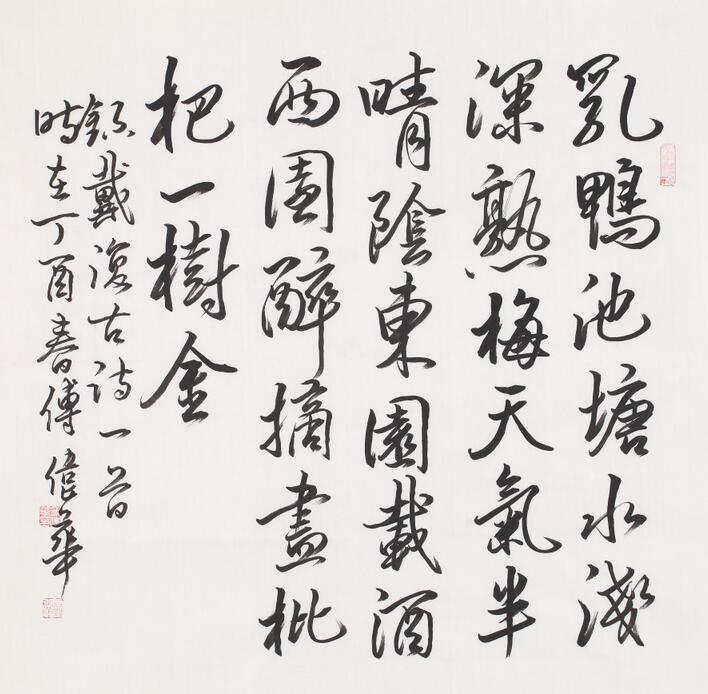 乳鴨池塘水淺
深熟梅天氣半
晴陰東園載酒
西園醉摘盡枇
杷一樹金
錄戴復古詩一首
時在丁酉春傅偉華